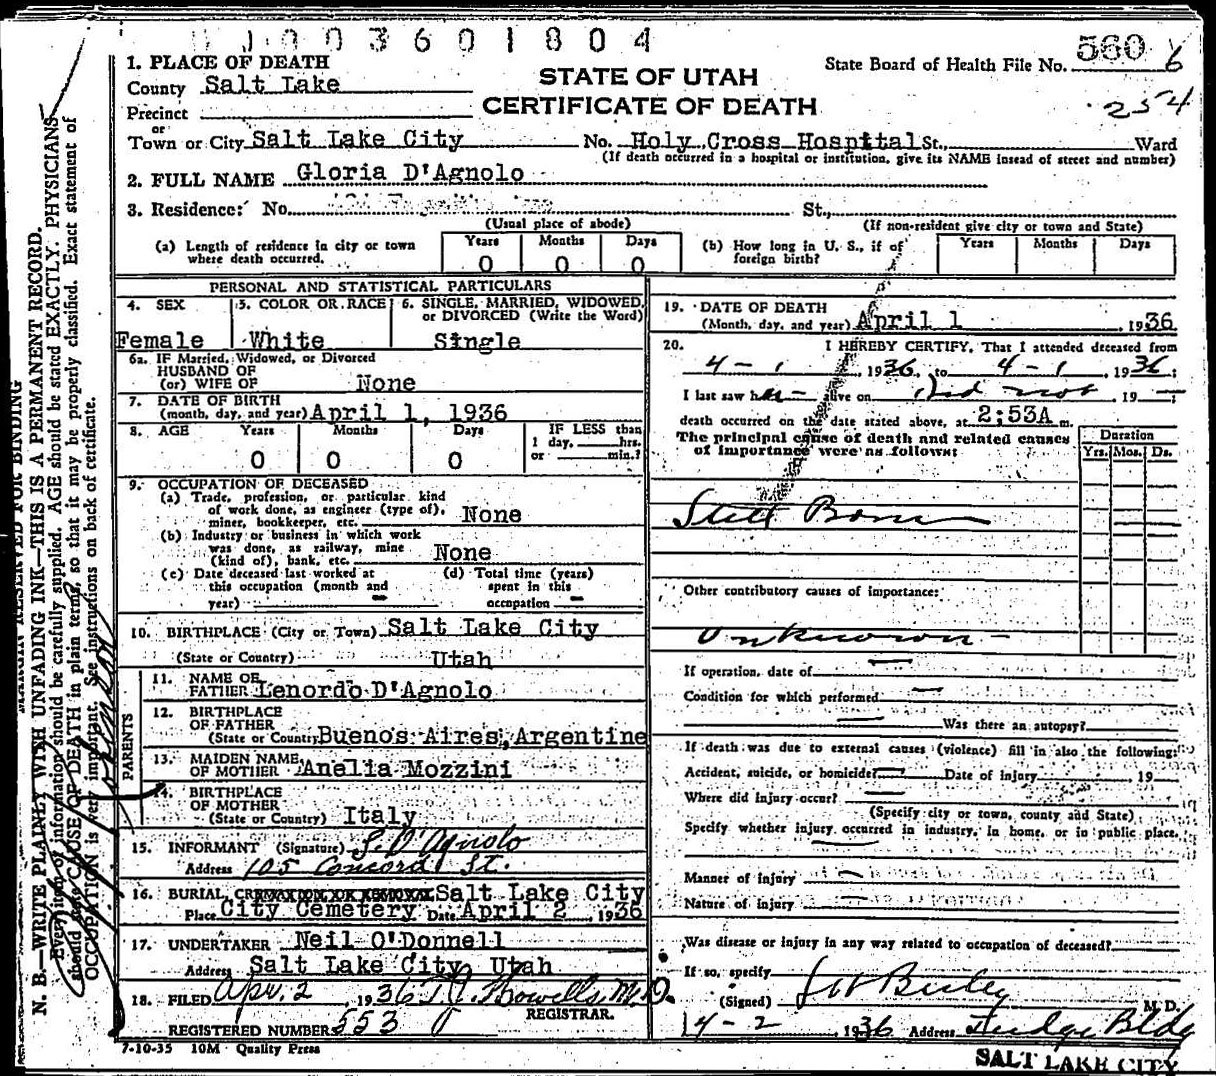 0 0 3 6 0 1 8 0 4
560 6
254
State Board of Health File No.
STATE OF UTAH
CERTIFICATE OF DEATH
1. PLACE OF DEATH
County Salt Lake
Precinct
or
Town or City Salt Lake City No. Holy Cross Hospital St., Ward
(If death occurred in a hospital or institution, give its NAME insead of street and number)
2. FULL NAME Gloria D'Agnolo
3. Residence: No. St.,
(Usual place of abode) (If non-resident give city or town and State)
(a) Length of residence in city or town where death occurred. Years 0 Months 0 Days 0
(b) How long in U. S., if of foreign birth? Years Months Days
PERSONAL AND STATISTICAL PARTICULARS
4. SEX Female
5. COLOR OR RACE White
6. SINGLE, MARRIED, WIDOWED, or DIVORCED (Write the Word) Single
6a. IF Married, Widowed, or Divorced
HUSBAND OF
(or) WIFE OF None
7. DATE OF BIRTH
(month, day, and year) April 1, 1936
8. AGE Years 0 Months 0 Days 0 IF LESS than
1 day, hrs.
or min.?
9. OCCUPATION OF DECEASED
(a) Trade, profession, or particular kind
of work done, as engineer (type of),
miner, bookkeeper, etc. None
(b) Industry or business in which work
was done, as railway, mine
(kind of), bank, etc. None
(c) Date deceased last worked at
this occupation (month and
year)
(d) Total time (years)
spent in this
occupation
10. BIRTHPLACE (City or Town) Salt Lake City
(State or Country) Utah
PARENTS
11. NAME OF
FATHER Lenordo D'Agnolo
12. BIRTHPLACE
OF FATHER
(State or Country) Buenos Aires, Argentine
13. MAIDEN NAME
OF MOTHER Anelia Mozzini
14. BIRTHPLACE
OF MOTHER
(State or Country) Italy
15. INFORMANT (Signature) L. D'Agnolo
Address 105 Concord St.
16. BURIAL, CREMATION OR REMOVAL Salt Lake City
Place City Cemetery Date April 2, 1936
17. UNDERTAKER Neil O'Donnell
Address Salt Lake City Utah
18. FILED Apr. 2, 1936 T. J. Howells M.D.
REGISTRAR.
REGISTERED NUMBER 553
7-10-35 10M Quality Press
19. DATE OF DEATH
(Month, day, and year) April 1, 1936
20. I HEREBY CERTIFY, That I attended deceased from
4-1, 1936, to 4-1, 1936;
I last saw her alive on Did not 19 —;
death occurred on the date stated above, at 2;53A m.
The principal cause of death and related causes
of importance were as follows:
Duration
Yrs. Mos. Ds.
Still Born
Other contributory causes of importance:
Unknown
If operation, date of
Condition for which performed
Was there an autopsy?
If death was due to external causes (violence) fill in also the following:
Accident, suicide, or homicide? Date of injury 19
Where did injury occur?
(Specify city or town, county and State)
Specify whether injury occurred in industry, in home, or in public place.
Manner of injury
Nature of injury
Was disease or injury in any way related to occupation of deceased?
If so, specify
(Signed) M. D.
4-2 1936 Address Judge Bldg
SALT LAKE CITY
MARGIN RESERVED FOR BINDING
N. B.—WRITE PLAINLY WITH UNFADING INK—THIS IS A PERMANENT RECORD.
Every item of information should be carefully supplied. AGE should be stated EXACTLY. PHYSICIANS
should state CAUSE OF DEATH in plain terms, so that it may be properly classified. Exact statement of
OCCUPATION is very important. See instructions on back of certificate.